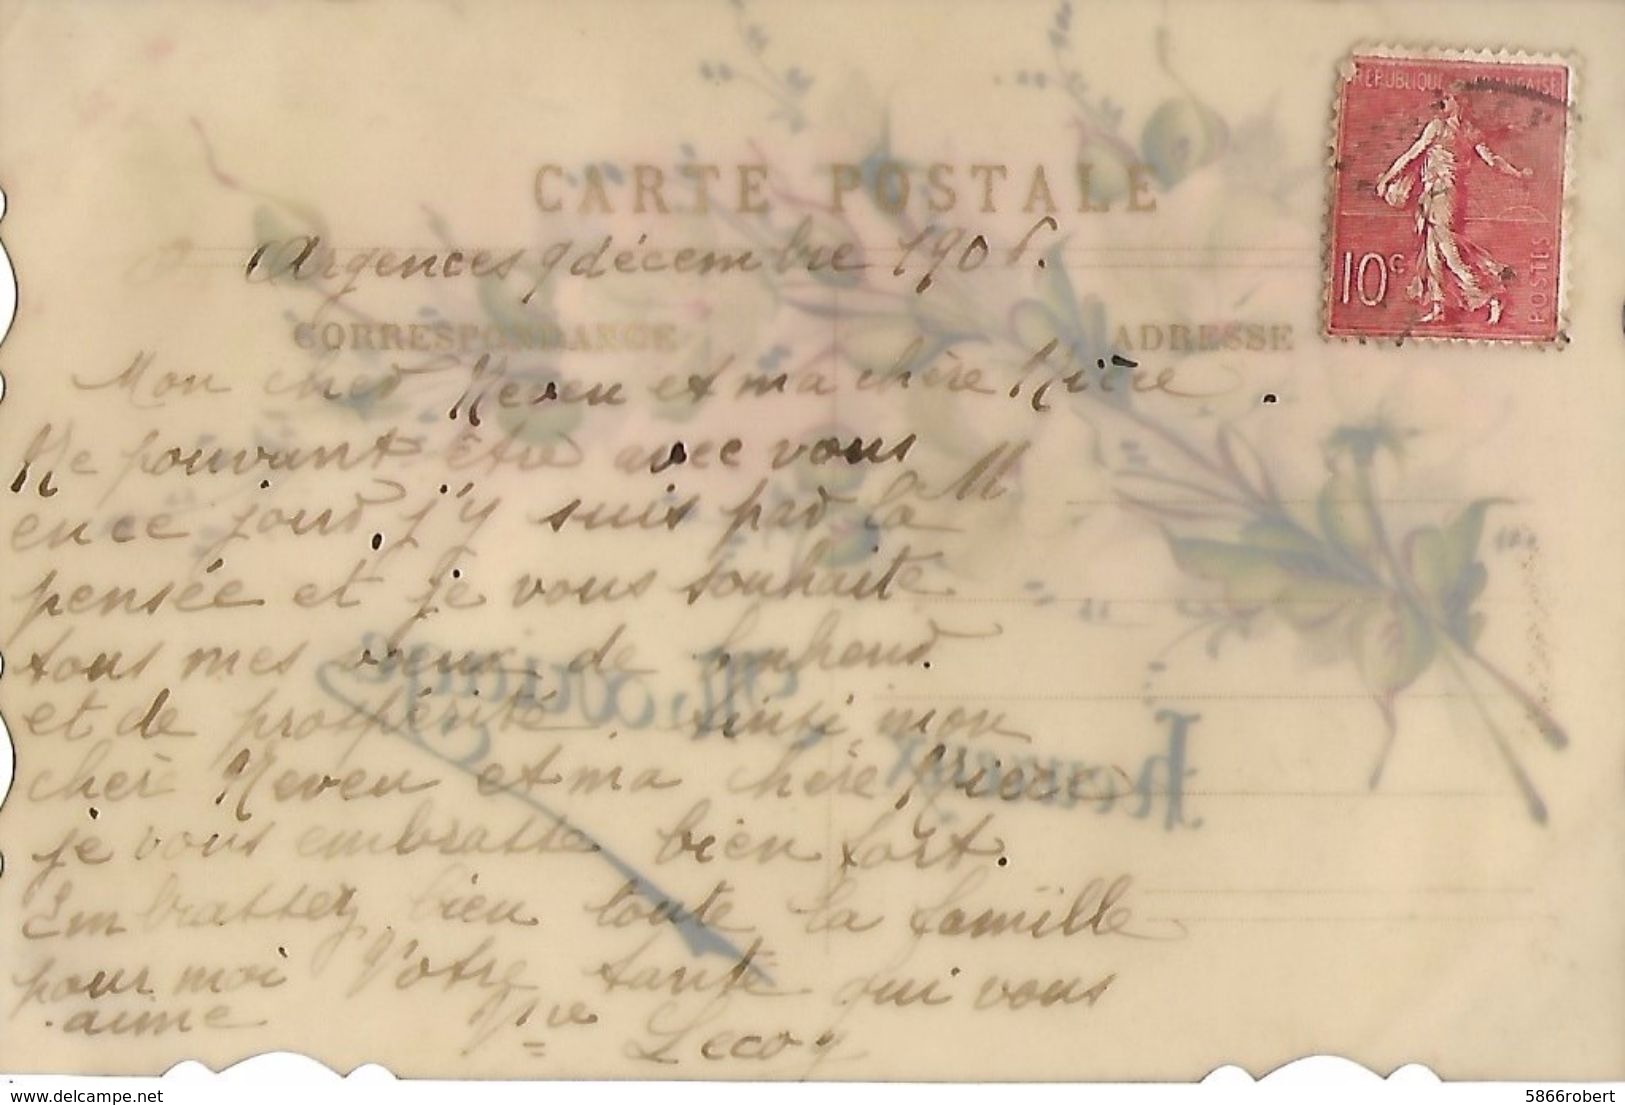 RÉPUBLIQUE FRANÇAISE
10c
POSTES
CARTE POSTALE
Argences 9 décembre 190
CORRESPONDANCE
ADRESSE
Mon cher Neveu et ma chère Nièce.
Ne pouvant être avec vous
en ce jour, j'y suis par la M
pensée et je vous souhaite
tous mes vœux de bonheur
et de prospérité. Ainsi mon
cher Neveu et ma chère Niece
je vous embrasse bien fort.
Embrassez bien toute la famille
pour moi Votre tante qui vous
aime Vve Lecoq
Heureux Mariage
delcampe.net
5866robert